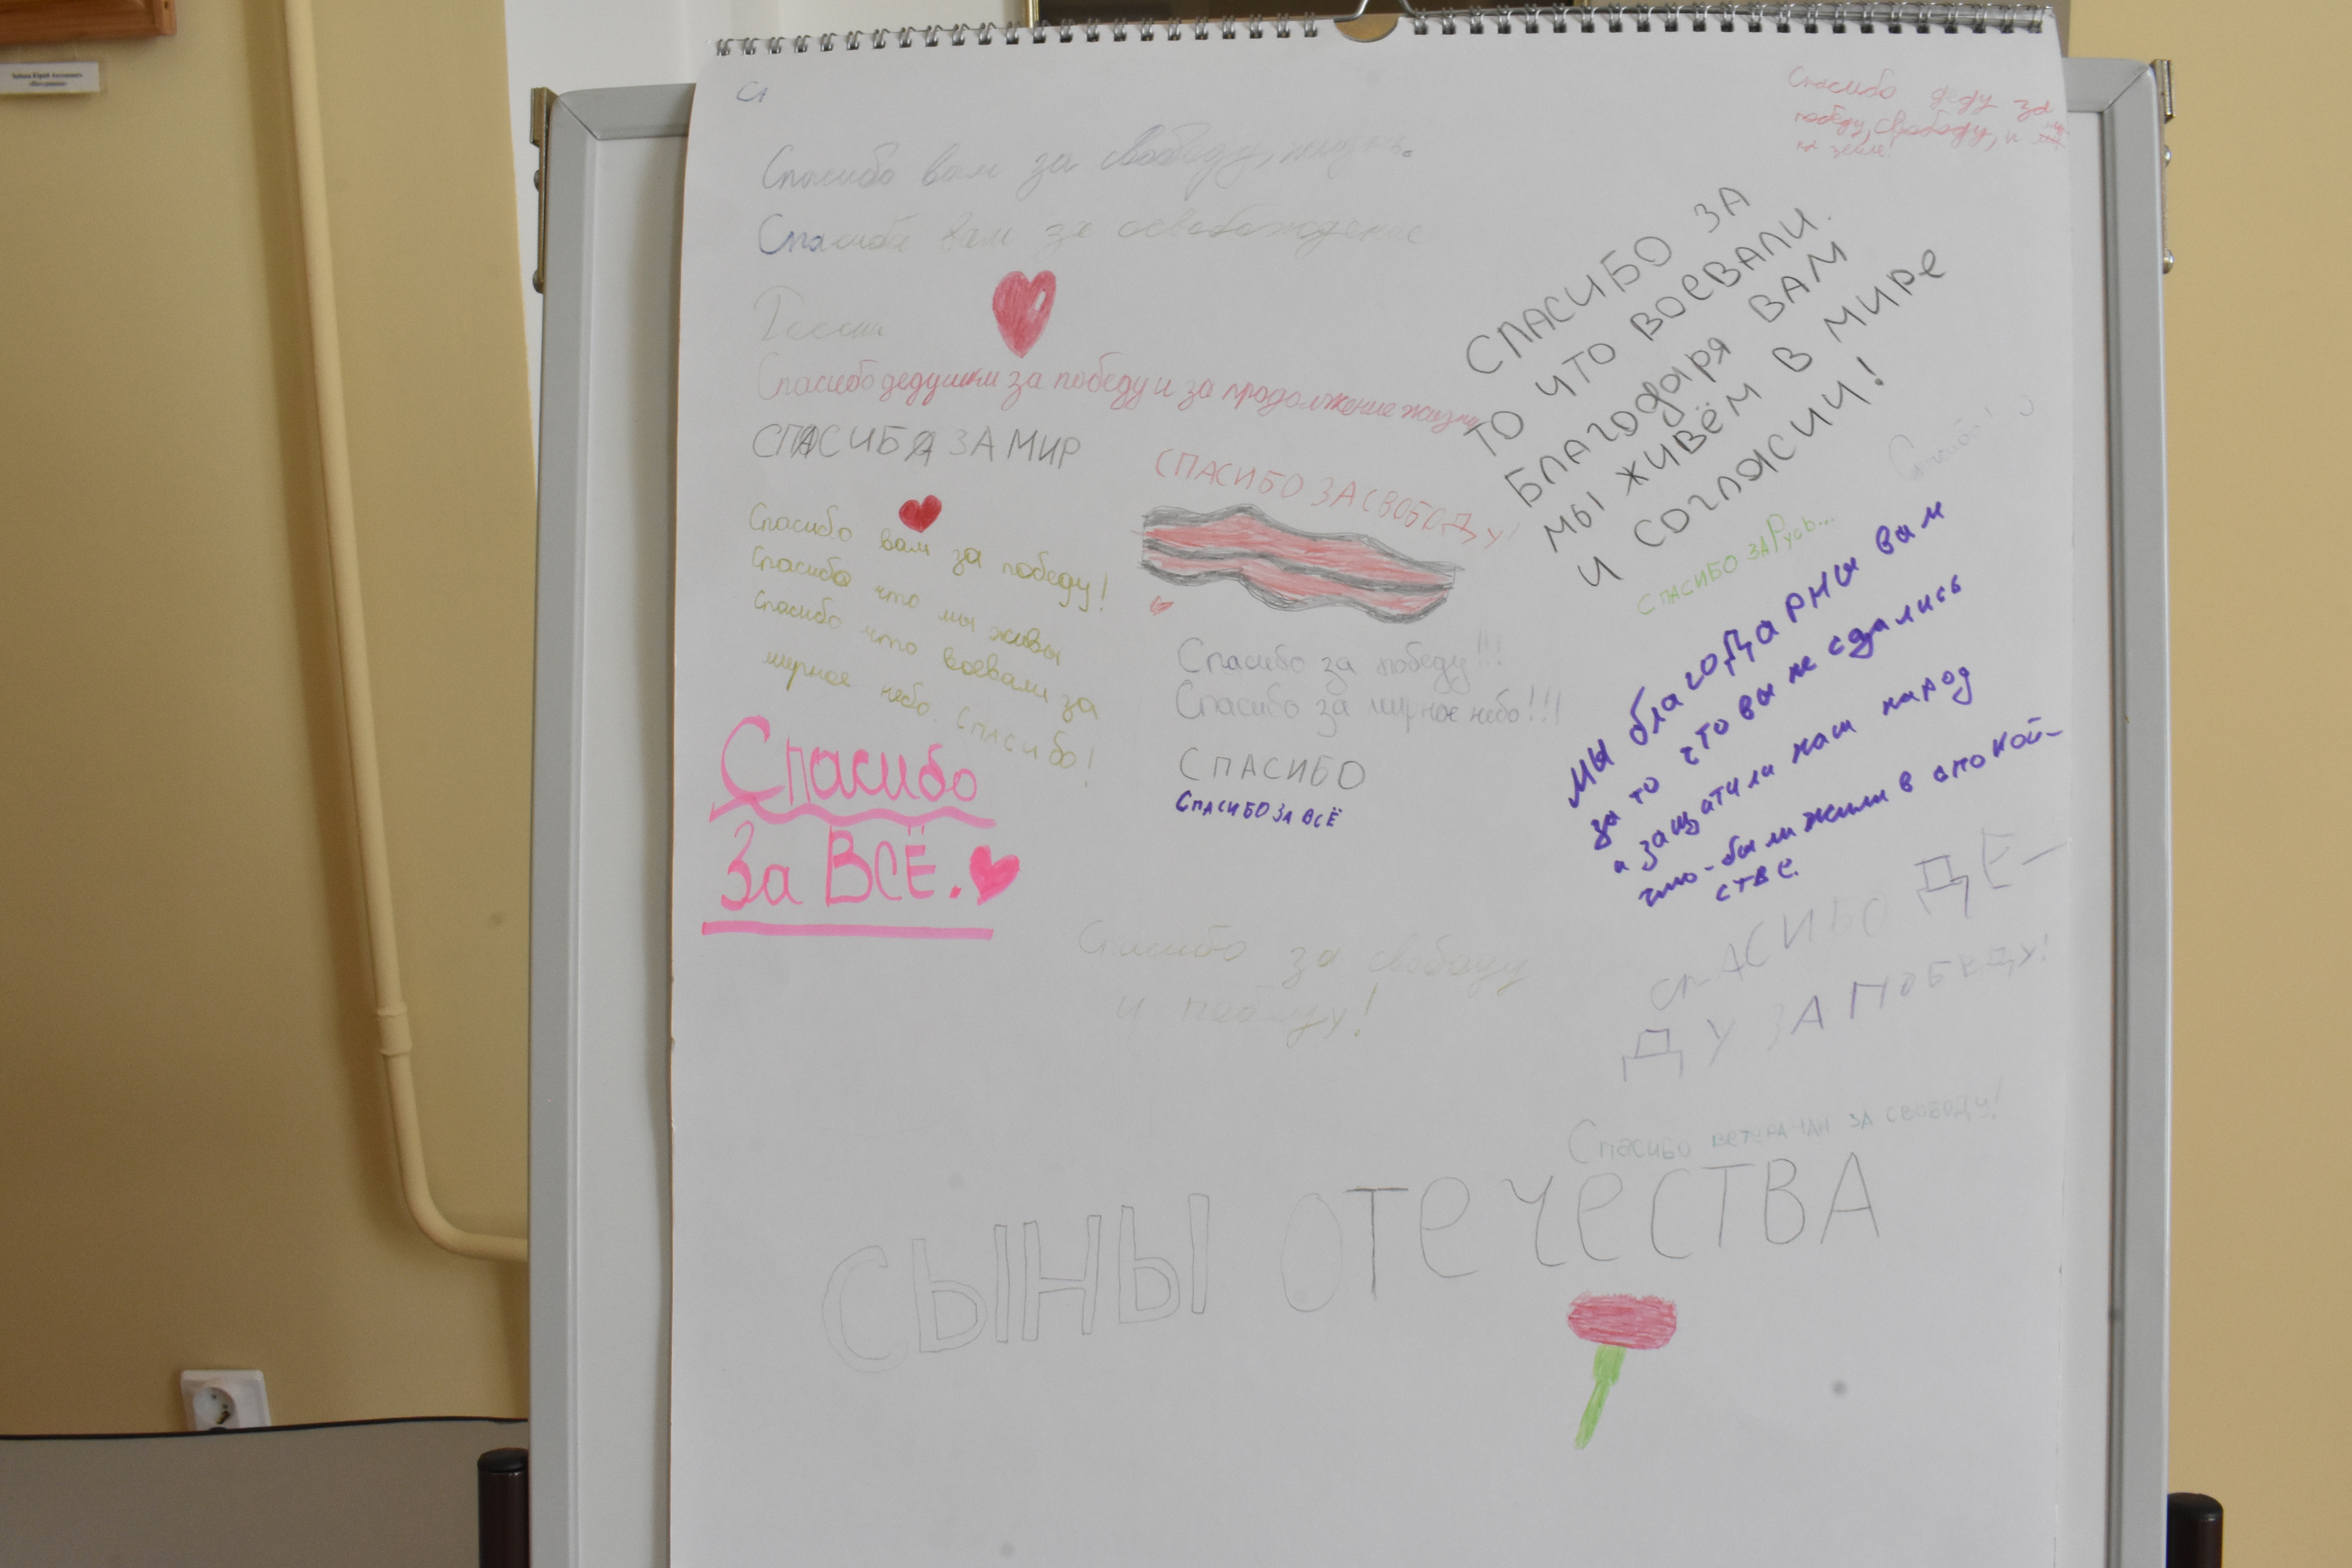 Сп
Спасибо вам за свободу, жизнь.
Спасибо вам за освобождение
России
Спасибо дедушкам за победу и за продолжение жизни
СПАСИБА ЗА МИР
Спасибо вам за победу!
Спасибо что мы живы
Спасибо что воевали за
мирное небо. Спасибо!
Спасибо
За ВСЁ.
СПАСИБО ЗА СВОБОДУ!
Спасибо за победу!!!
Спасибо за мирное небо!!!
СПАСИБО
СПАСИБО ЗА ВСЁ
Спасибо за свободу
и победу!
Спасибо деду за
победу, свободу, и
на земле!
СПАСИБО ЗА
ТО ЧТО ВОЕВАЛИ.
БЛАГОДАРЯ ВАМ
МЫ ЖИВЁМ В МИРЕ
И СОГЛАСИИ!
Спасибо!
СПАСИБО ЗА РУСЬ...
Мы благодарны вам
за то что вы не сдались
и защатили наш народ
что-бы мы жили в спокой-
стве.
СПАСИБО ДЕ-
ДУ ЗА ПОБЕДУ!
СПАСИБО ВЕТЕРАНАМ ЗА СВОБОДУ!
СЫНЫ ОТЕЧЕСТВА